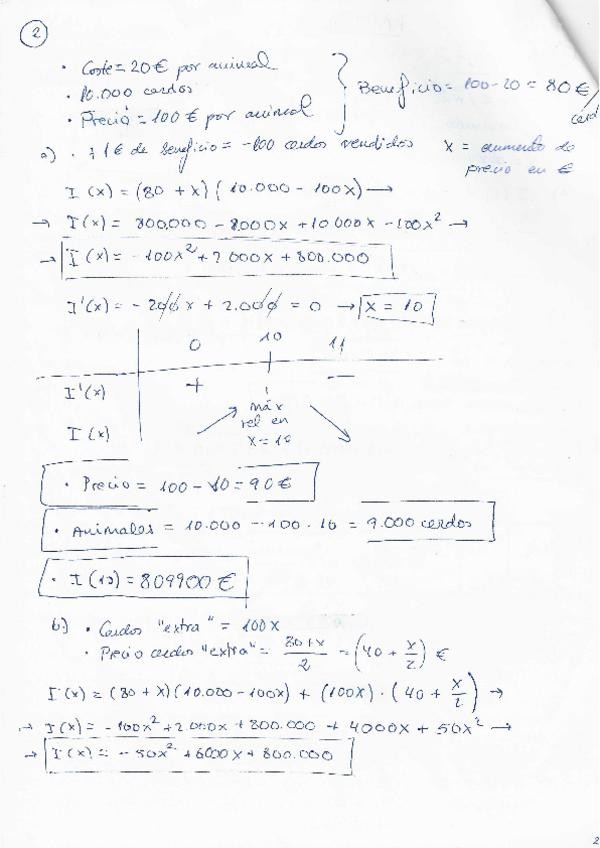 2
• Coste = 20 € por animal
• 10.000 cerdos
• Precio = 100 € por animal
Beneficio = 100 - 20 = 80 €/cerdo
a) • ↓ 1€ de beneficio = -100 cerdos vendidos
x = aumento de precio en €
I(x) = (80 + x)(10.000 - 100x) →
→ I(x) = 800.000 - 8000x + 10000x - 100x² →
→ I(x) = -100x² + 2000x + 800.000
I'(x) = -200x + 2.000 = 0 → x = 10
0 10 11
I'(x) + -
I(x) máx
rel en
x = 10
• Precio = 100 - 10 = 90 €
• Animales = 10.000 - 100 · 10 = 9.000 cerdos
• I(10) = 809900 €
b) • Cerdos "extra" = 100x
• Precio cerdos "extra" = (80+x)/2 = (40 + x/2) €
I(x) = (80 + x)(10.000 - 100x) + (100x) · (40 + x/2) →
→ I(x) = -100x² + 2000x + 800.000 + 4000x + 50x² →
→ I(x) = -50x² + 6000x + 800.000
2